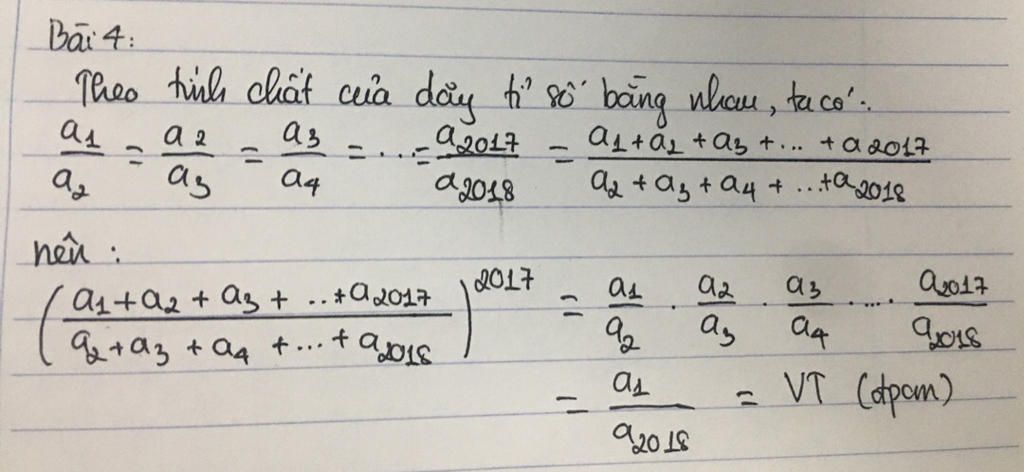 Bài 4:
Theo tính chất của dãy tỉ số bằng nhau, ta có:
a₁/a₂ = a₂/a₃ = a₃/a₄ = ... = a₂₀₁₇/a₂₀₁₈ = (a₁ + a₂ + a₃ + ... + a₂₀₁₇)/(a₂ + a₃ + a₄ + ... + a₂₀₁₈)
nên :
((a₁ + a₂ + a₃ + ... + a₂₀₁₇)/(a₂ + a₃ + a₄ + ... + a₂₀₁₈))²⁰¹⁷ = a₁/a₂ . a₂/a₃ . a₃/a₄ . ... . a₂₀₁₇/a₂₀₁₈
= a₁/a₂₀₁₈ = VT (đpcm)